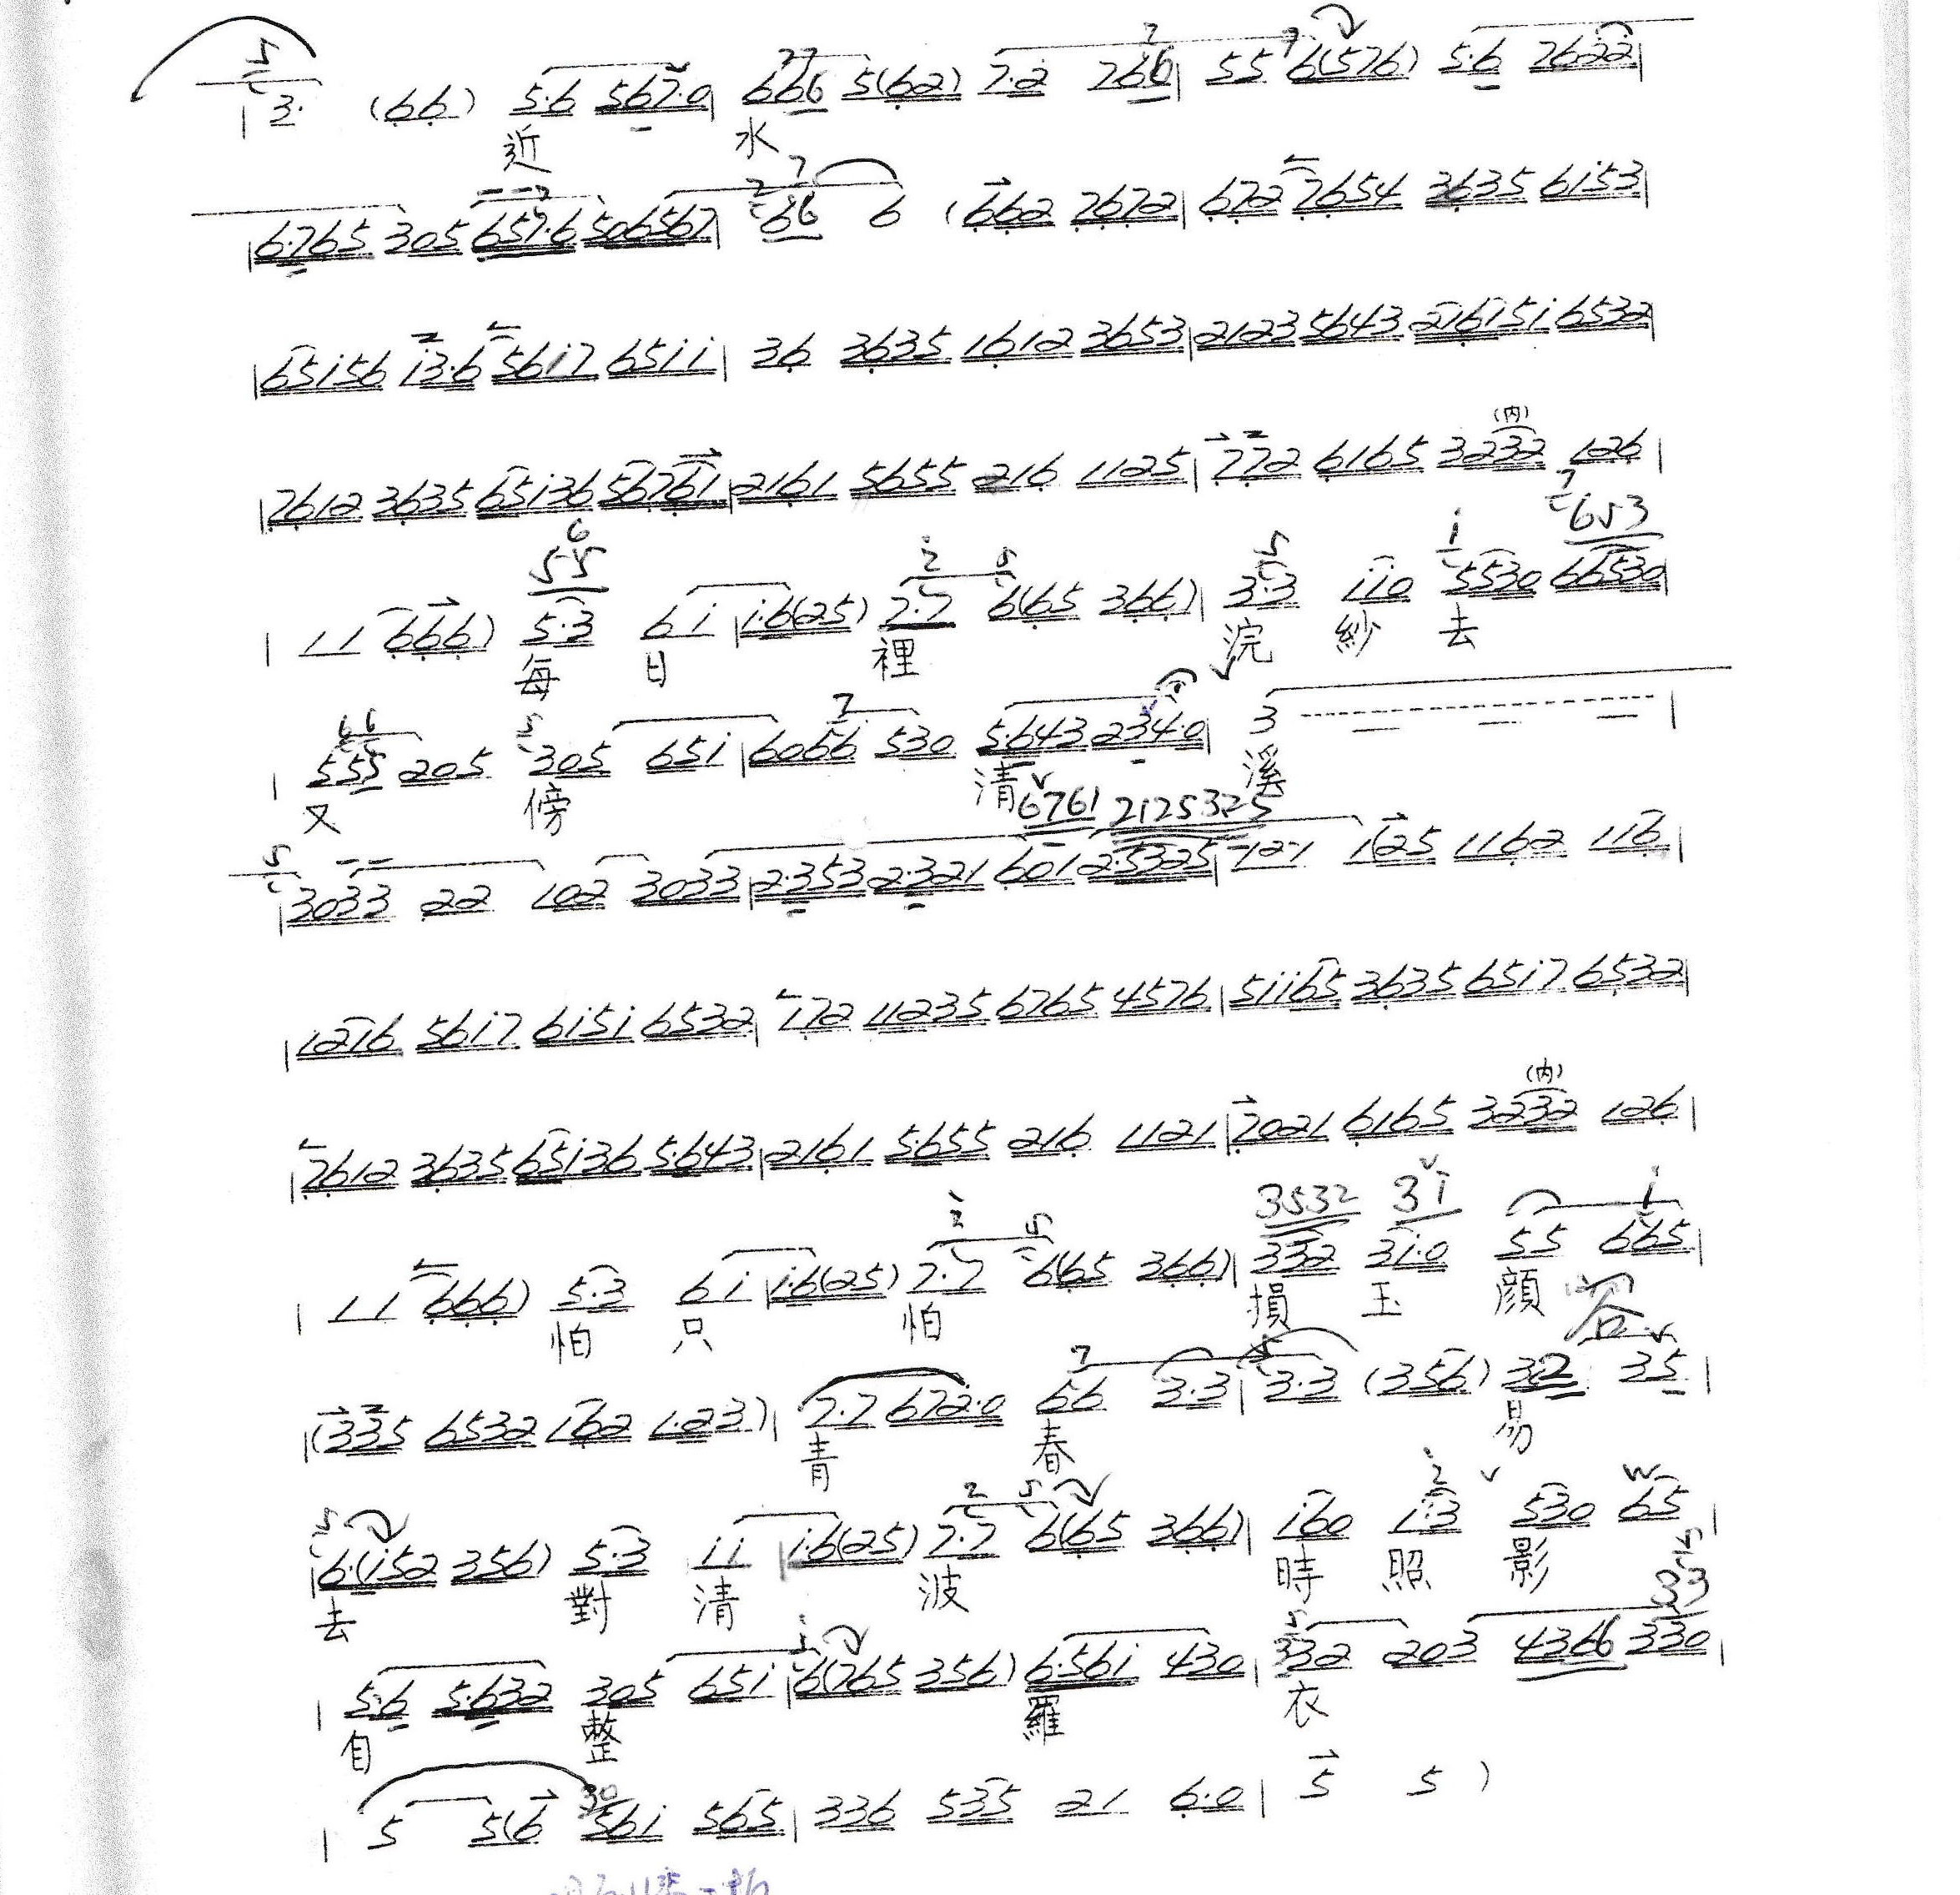 3. (66) 5.6 567.0| 666 5(62) 7.2 766| 55 6(576) 5.6 7622|
近 水
|6.765 305 657.6 506567| 66 6 (662 7672| 672 7654 3635 6153|
|65156 13.6 5617 6511| 36 3635 1612 3653| 2123 5643 216151 6532|
(内)
|7612 3635 65136 56761| 2161 5655 216 1125| 772 6165 3232 126|
55 653
| 11 666) 5.3 61 |1.6(25) 7.7 6(65 366)| 3.3 110 5530 66530|
每 日 裡 浣 紗 去
| 555 205 305 651| 6066 530 5.643 234.0| 3 |
又 傍 清 溪
6761 2125325
|3033 22 102 3033| 2.353 2.321 601 2.5325| 121 125 1162 116|
|1216 5617 6151 6532| 172 11235 6765 4576| 51165 3635 6517 6532|
(内)
|7612 3635 65136 5.643| 2161 5.655 216 1121| 7021 6165 3232 126|
3532 31
| 11 666) 5.3 61 |1.6(25) 7.7 6(65 366)| 332 31.0 55 665|
怕 只 怕 損 玉 顔
|(335 6532 162 1.23)| 7.7 672.0 66 3.3| 3.3 (356) 3.2 35|
青 春 易
|6.(152 356) 5.3 11 |1.6(25) 7.7 6(65 366)| 160 1.3 530 65|
去 對 清 波 時 照 影
| 5.6 5.632 305 651| 6(765 356) 6.561 430| 332 203 4366 330|
自 整 羅 衣
| 5 5(6 561 565| 336 535 21 6.0| 5 5 )